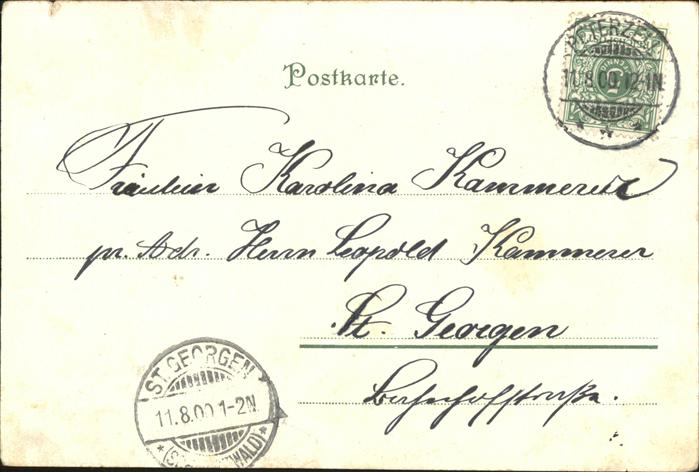 Postkarte.
PETERZELL
11.8.00.12-1N.
Fräulein Karolina Kammerer
pr. Adr. Herrn Leopold Kammerer
St. Georgen
Bahnhofstraße.
ST. GEORGEN
11.8.00 1-2N.
(SCHWARZWALD)